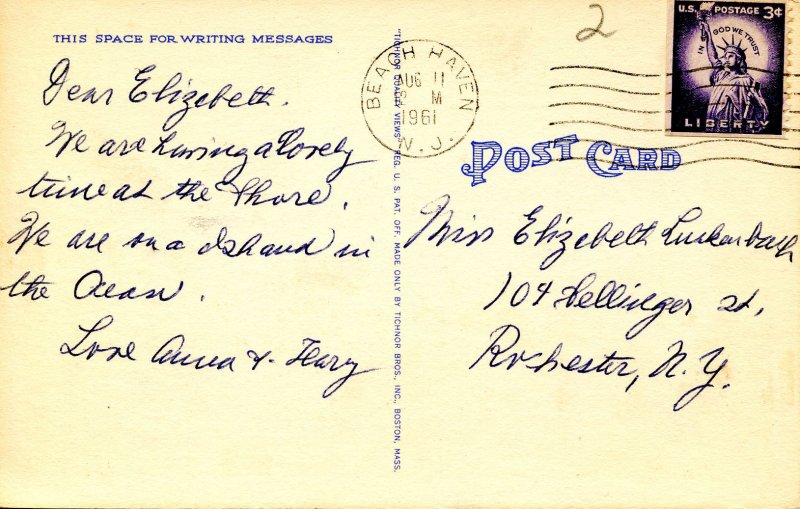 THIS SPACE FOR WRITING MESSAGES
Dear Elizebeth.
We are having a lovely
time at the Shore.
We are on a Island in
the Ocean.
Love Anna &
"TICHNOR QUALITY VIEWS" REG. U. S. PAT. OFF. MADE ONLY BY TICHNOR BROS., INC., BOSTON, MASS.
BEACH HAVEN
AUG 11
M
1961
N. J.
2
U.S. POSTAGE 3¢
IN GOD WE TRUST
LIBERTY
POST CARD
Miss Elizebeth Luckenbach
104 St,
Rochester, N.Y.